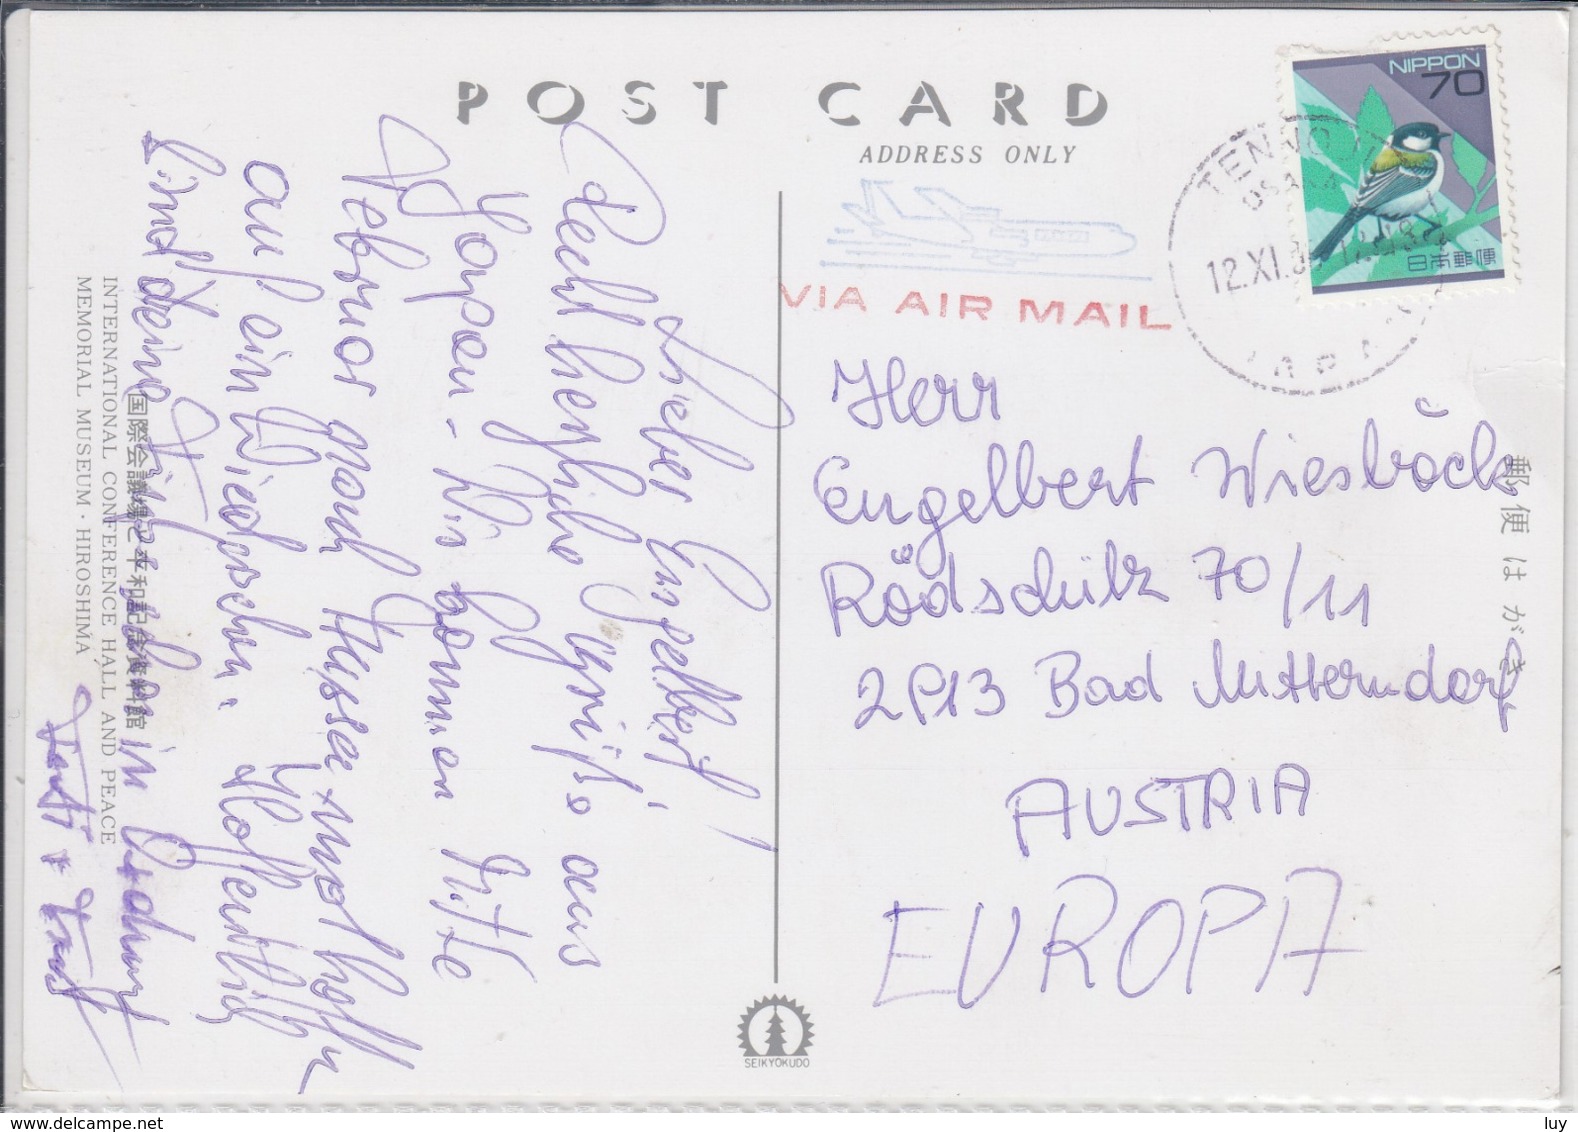 POST CARD
ADDRESS ONLY
NIPPON
70
日本郵便
OSAKA
12.XI.
VIA AIR MAIL
Lieber Engelbert!
Recht herzliche Grüße aus
Japan. Wir kommen Mitte
Februar nach Hause und hoffen
auf ein Wiedersehen. Hoffentlich
sind deine Finger in Ordnung
Herr
Engelbert Wiesböck
Rödschütz 70/11
2P13 Bad Mitterndorf
AUSTRIA
EUROPA
郵便はがき
国際会議場と平和記念資料館
INTERNATIONAL CONFERENCE HALL AND PEACE
MEMORIAL MUSEUM · HIROSHIMA
SEIKYOKUDO
www.delcampe.net
luy